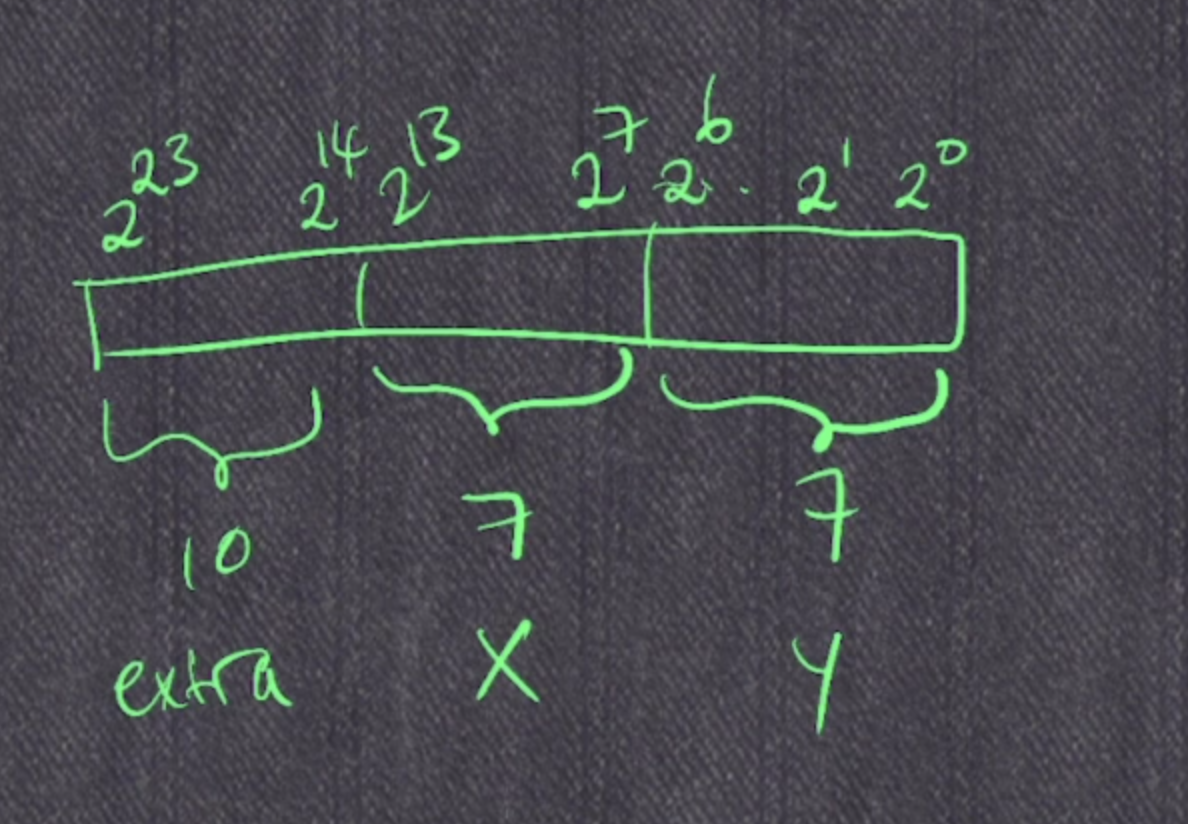 2^23 2^14 2^13 2^7 2^6 . 2^1 2^0
10 7 7
extra X Y